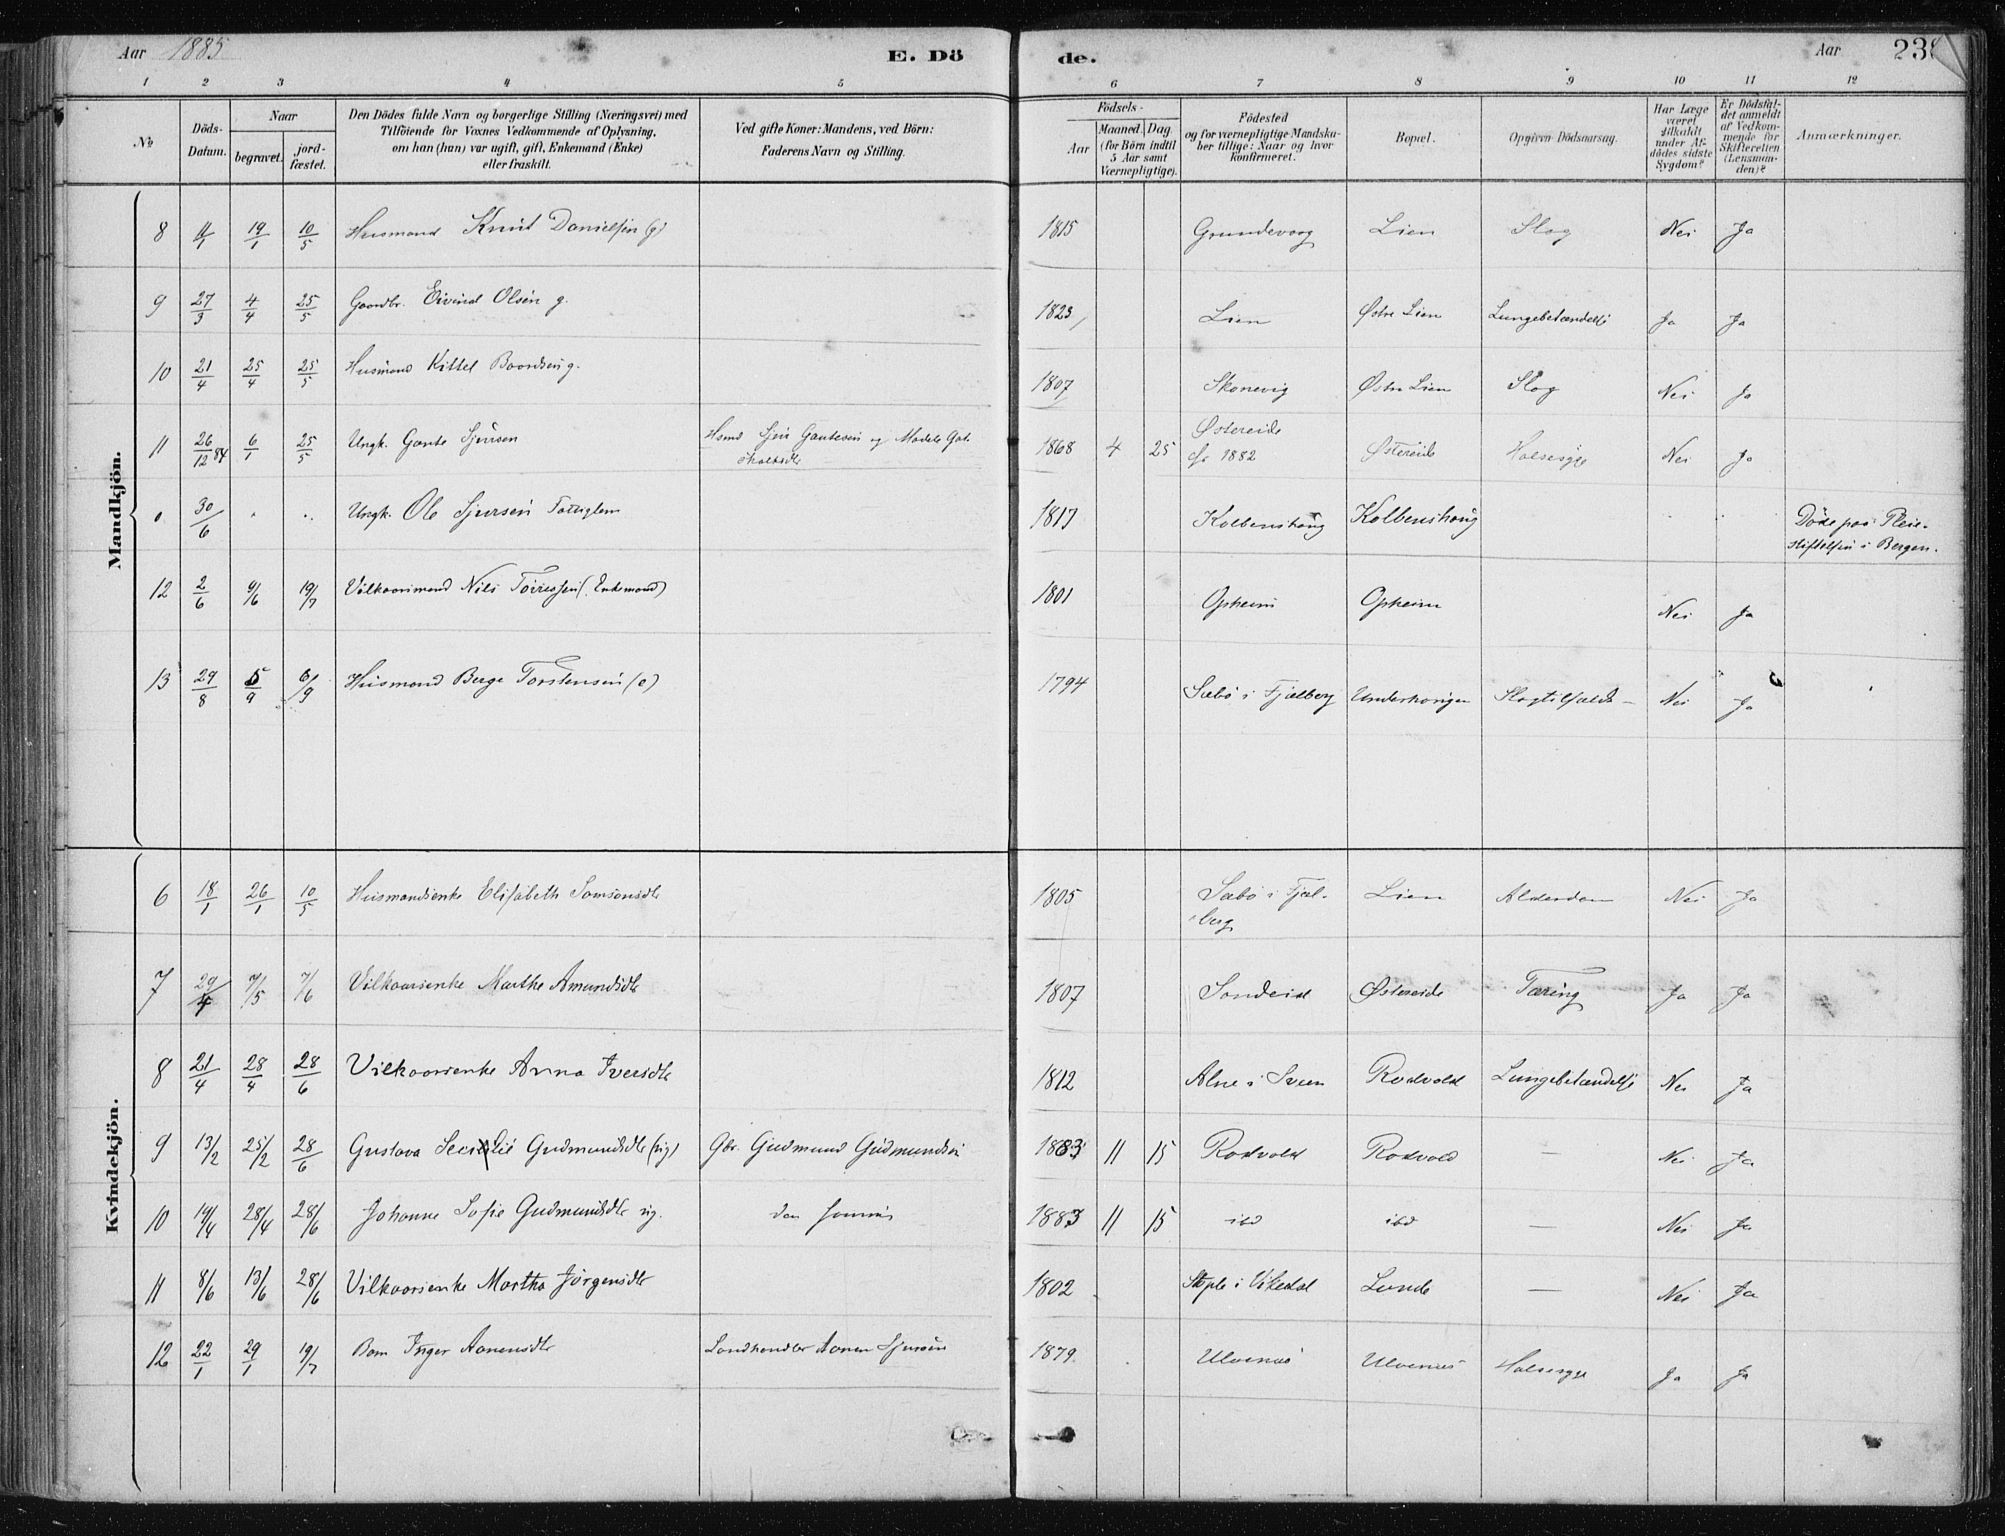 Aar 1885 E. Dö de. Aar 238
1 2 3 4 5 6 7 8 9 10 11 12
№ Döds-Datum. Naar begravet. jord-fæstet. Den Dödes fulde Navn og borgerlige Stilling (Næringsvei) med Tilföiende for Voxnes Vedkommende af Oplysning, om han (hun) var ugift, gift, Enkemand (Enke) eller fraskilt. Ved gifte Koner: Mandens, ved Börn: Faderens Navn og Stilling. Födsels- Aar Maaned. Dag. (for Börn indtil 5 Aar samt Værnepligtige). Födested og for værnepligtige Mandskaber tillige: Naar og hvor konfirmeret. Bopæl. Opgiven Dödsaarsag. Har Læge været tilkaldt under Afdödes sidste Sygdom? Er Dödsfaldet anmeldt af Vedkommende for Skifteretten (Lensmanden)? Anmærkninger.
Mandkjön.
8 11/1 19/1 10/5 Husmand Knut Danielsen (g) 1815 Grundevaag Lien Slag Nei Ja
9 27/3 4/4 25/5 Gaardbr. Eivind Olsen g. 1823 Lien Østre Lien Lungebetændelse Ja Ja
10 21/4 25/4 25/5 Husmand Kittel Baardsen g. 1807 Skonevig Østre Lien Slag Nei Ja
11 26/12 84 6/1 25/5 Ungk. Gaute Sjursen Hsmd Sjur Gautesen og 1868 4 25 Østereide cfr 1882 Østereide Halsesyge Nei Ja
0 30/6 " " Ungk. Ole Sjursen Fattiglem 1817 Kolbenshaug Kolbenshaug Döde paa Pleie-
stiftelsen i Bergen.
12 2/6 9/6 19/7 Vilkaarsmand Nils Torressen (Enkemand) 1801 Opheim Opheim Nei Ja
13 29/8 5/9 6/9 Husmand Berge Torstensen (e) 1794 Sæbö i Fjelberg Underhaugen Slagtilfælde Nei Ja
Kvindekjön.
6 18/1 26/1 10/5 Husmandsenke Elisabeth Samsonsdtr 1805 Sæbö i Fjel-
berg Lien Alderdom Nei Ja
7 29/4 7/5 7/6 Vilkaarsenke Marthe Amundsdtr 1807 Sandeid Østereide Tæring Ja Ja
8 21/4 28/4 28/6 Vilkaarsenke Anna Iversdtr 1812 Alne i Sveen Rodvold Lungebetændelse Nei Ja
9 13/2 25/2 28/6 Gustava Gudmundsdtr (ug) Gbr. Gudmund Gudmundsen 1883 11 15 Rodvold Rodvold — Nei Ja
10 19/4 28/4 28/6 Johanne Sofie Gudmundsdtr ug. den samme 1883 11 15 ibd ibd — Nei Ja
11 8/6 13/6 28/6 Vilkaarsenke Martha Jörgensdtr 1802 Stople i Vikedal Lunde — Nei Ja
12 22/1 29/1 19/7 Barn Inger Aanensdtr Landhandler Aanen Sjursen 1879 Ulvenæs Ulvenæs Halsesyge Ja Ja